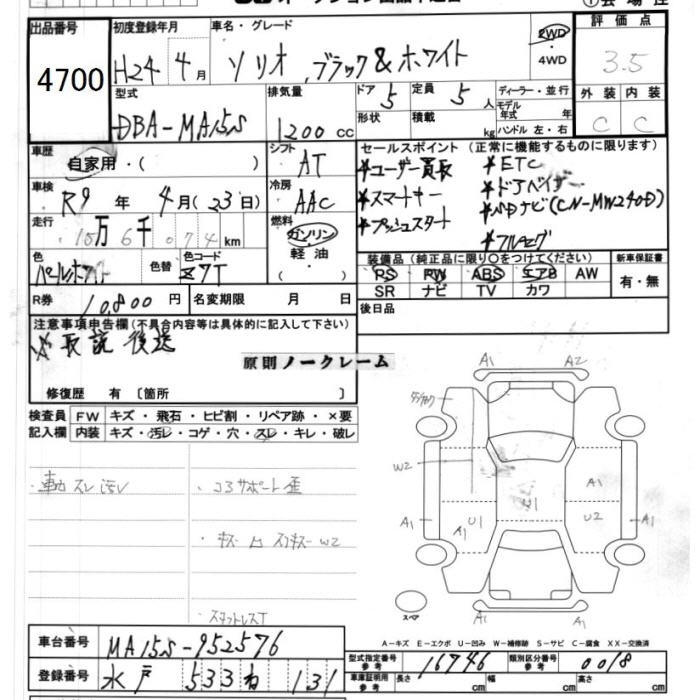 出品番号
4700
初度登録年月
H24年 4月
車名・グレード
ソリオ ブラック&ホワイト
2WD
・4WD
評価点
3.5
型式
DBA-MA15S
排気量
1200 cc
ドア 5
定員 5 人
形状
積載 kg
ディーラー・並行
モデル年式 年
ハンドル 左・右
外装 内装
C C
車歴
自家用・( )
シフト
AT
車検
R9 年 4月(23日)
冷房
AAC
走行
15万6千074km
燃料
ガソリン
・軽油
( )
色
パールホワイト
色替
色コード
Z7T
R券
10,800円
名変期限 月 日
セールスポイント(正常に機能するものに限ります)
★ユーザー買長 ★ETC
★スマートキー
★プッシュスタート ナビ(CN-MW240D)
★フルセグ
装備品(純正品に限り○をつけてください)
PS PW ABS エアB AW
SR ナビ TV カワ
新車保証書
有・無
後日品
注意事項申告欄(不具合内容等は具体的に記入して下さい)
☆取説後送
原則ノークレーム
修復歴 有〔箇所 〕
検査員 FW キズ・飛石・ヒビ割・リペア跡・×要
記入欄 内装 キズ・汚レ・コゲ・穴・スレ・キレ・破レ
スレ汚レ
・コアサポート歪
・スタットレスT
A1 A2
W2
A1
U1
A1 U1 U2 A1
A1
A1
スペア
A-キズ E-エクボ U-凹み W-補修跡 S-サビ C-腐食 XX-交換済
車台番号
MA15S-952576
登録番号
水戸 533 ね 131
型式指定番号 参考 16746
類別区分番号 参考 0018
車庫証明用 参考 長さ cm 幅 cm 高さ cm